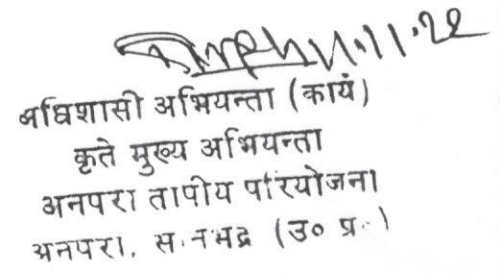 11.11.22
अधिशासी अभियन्ता (कार्य)
कृते मुख्य अभियन्ता
अनपरा तापीय परियोजना
अनपरा, सोनभद्र (उ० प्र०)